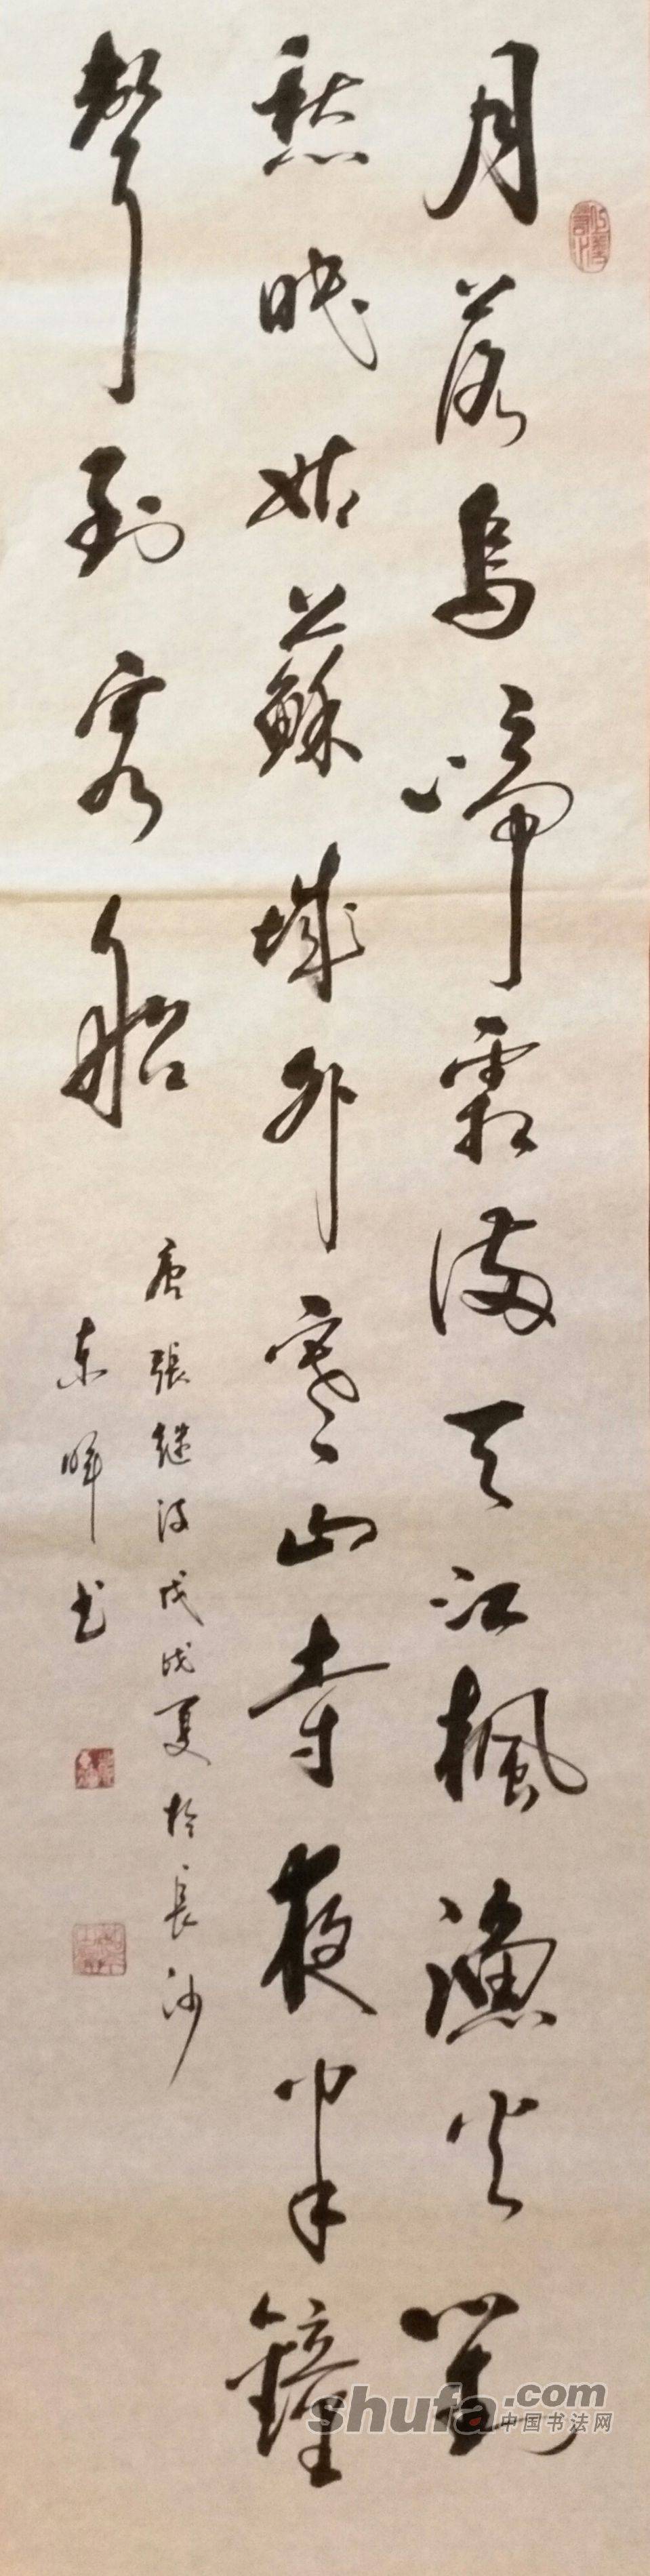 月落烏啼霜滿天江楓漁火對
愁眠姑蘇城外寒山寺夜半鐘
聲到客船
唐張继詩戊戌夏於長沙
东暉书
shufa.com
中国书法网